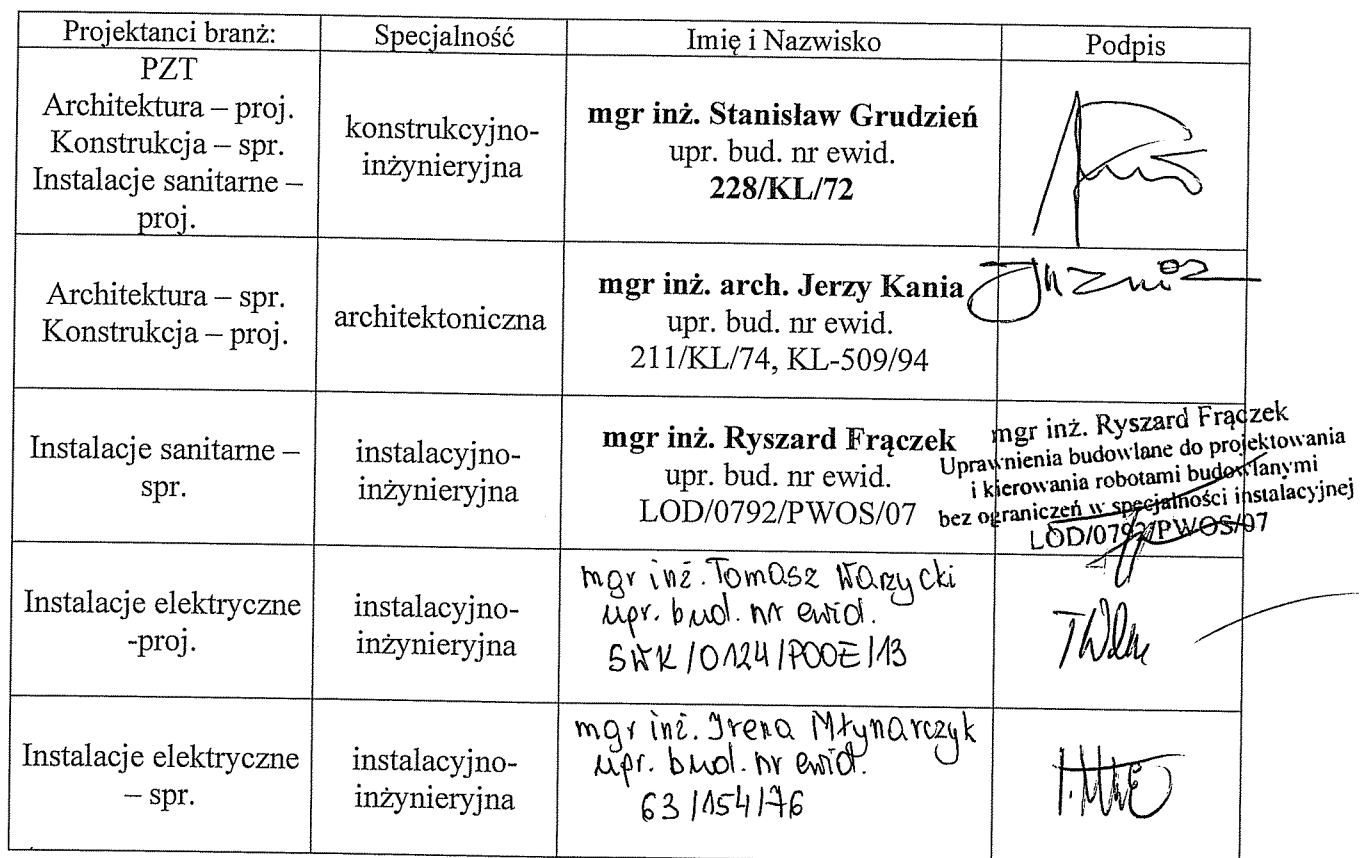 Projektanci branż:
Specjalność
Imię i Nazwisko
Podpis
PZT
Architektura – proj.
Konstrukcja – spr.
Instalacje sanitarne –
proj.
konstrukcyjno-
inżynieryjna
mgr inż. Stanisław Grudzień
upr. bud. nr ewid.
228/KL/72
Architektura – spr.
Konstrukcja – proj.
architektoniczna
mgr inż. arch. Jerzy Kania
upr. bud. nr ewid.
211/KL/74, KL-509/94
Instalacje sanitarne –
spr.
instalacyjno-
inżynieryjna
mgr inż. Ryszard Frączek
upr. bud. nr ewid.
LOD/0792/PWOS/07
mgr inż. Ryszard Frączek
Uprawnienia budowlane do projektowania
i kierowania robotami budowlanymi
bez ograniczeń w specjalności instalacyjnej
LOD/0792/PWOS/07
Instalacje elektryczne
-proj.
instalacyjno-
inżynieryjna
mgr inż. Tomasz Warzycki
upr. bud. nr ewid.
SWK/0124/POOE/13
Instalacje elektryczne
– spr.
instalacyjno-
inżynieryjna
mgr inż. Irena Młynarczyk
upr. bud. nr ewid.
63/154/76